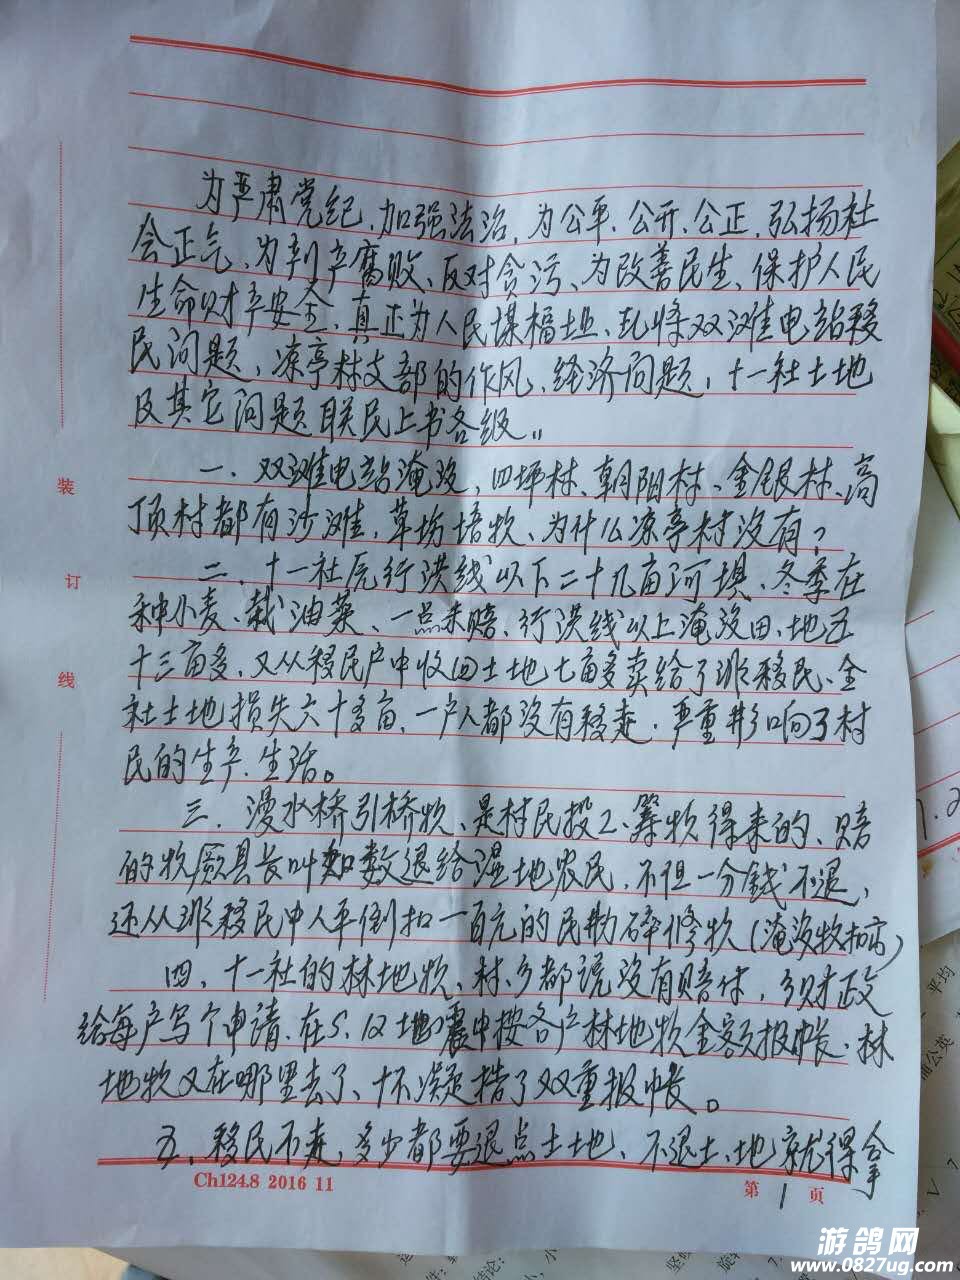 为严肃党纪、加强法治、为公平、公开、公正、弘扬社
会正气、为剷产腐败、反对贪污、为改善民生、保护人民
生命财产安全、真正为人民谋福业、现将双滩电站移
民问题、凉亭村支部的作风、经济问题、十一社土地
及其它问题联民上书各级。
一、双滩电站淹没，四坪村、朝阳村、金银村、高
顶村都有沙滩，草坊培牧、为什么凉亭村没有？
二、十一社原行洪线以下二十几亩河坝、冬季在
种小麦、栽油菜、一点未赔、行洪线以上淹没田、地五
十三亩多，又从移民户中收回土地七亩多卖给了非移民、全
社土地损失六十多亩、一户人都没有移走，严重影响了村
民的生产、生活。
三、漫水桥引桥牧、是村民投工、筹牧得来的、赔
的牧 县长叫如数退给湿地农民，不但一分钱不退，
还从非移民中人平倒扣一百元的民 碎修牧（淹没牧扣 ）
四、十一社的林地牧、村、乡都说没有赔付，乡财政
给每户写个申请、在5.12地震中按各户林地牧金额报帐、林
地牧又在哪里去了、怀疑 了双重报帐。
五、移民不走，多少都要退点土地、不退土地就得拿
装
订
线
Ch124.8 2016 11
第 1 页
游鸽网
www.0827ug.com